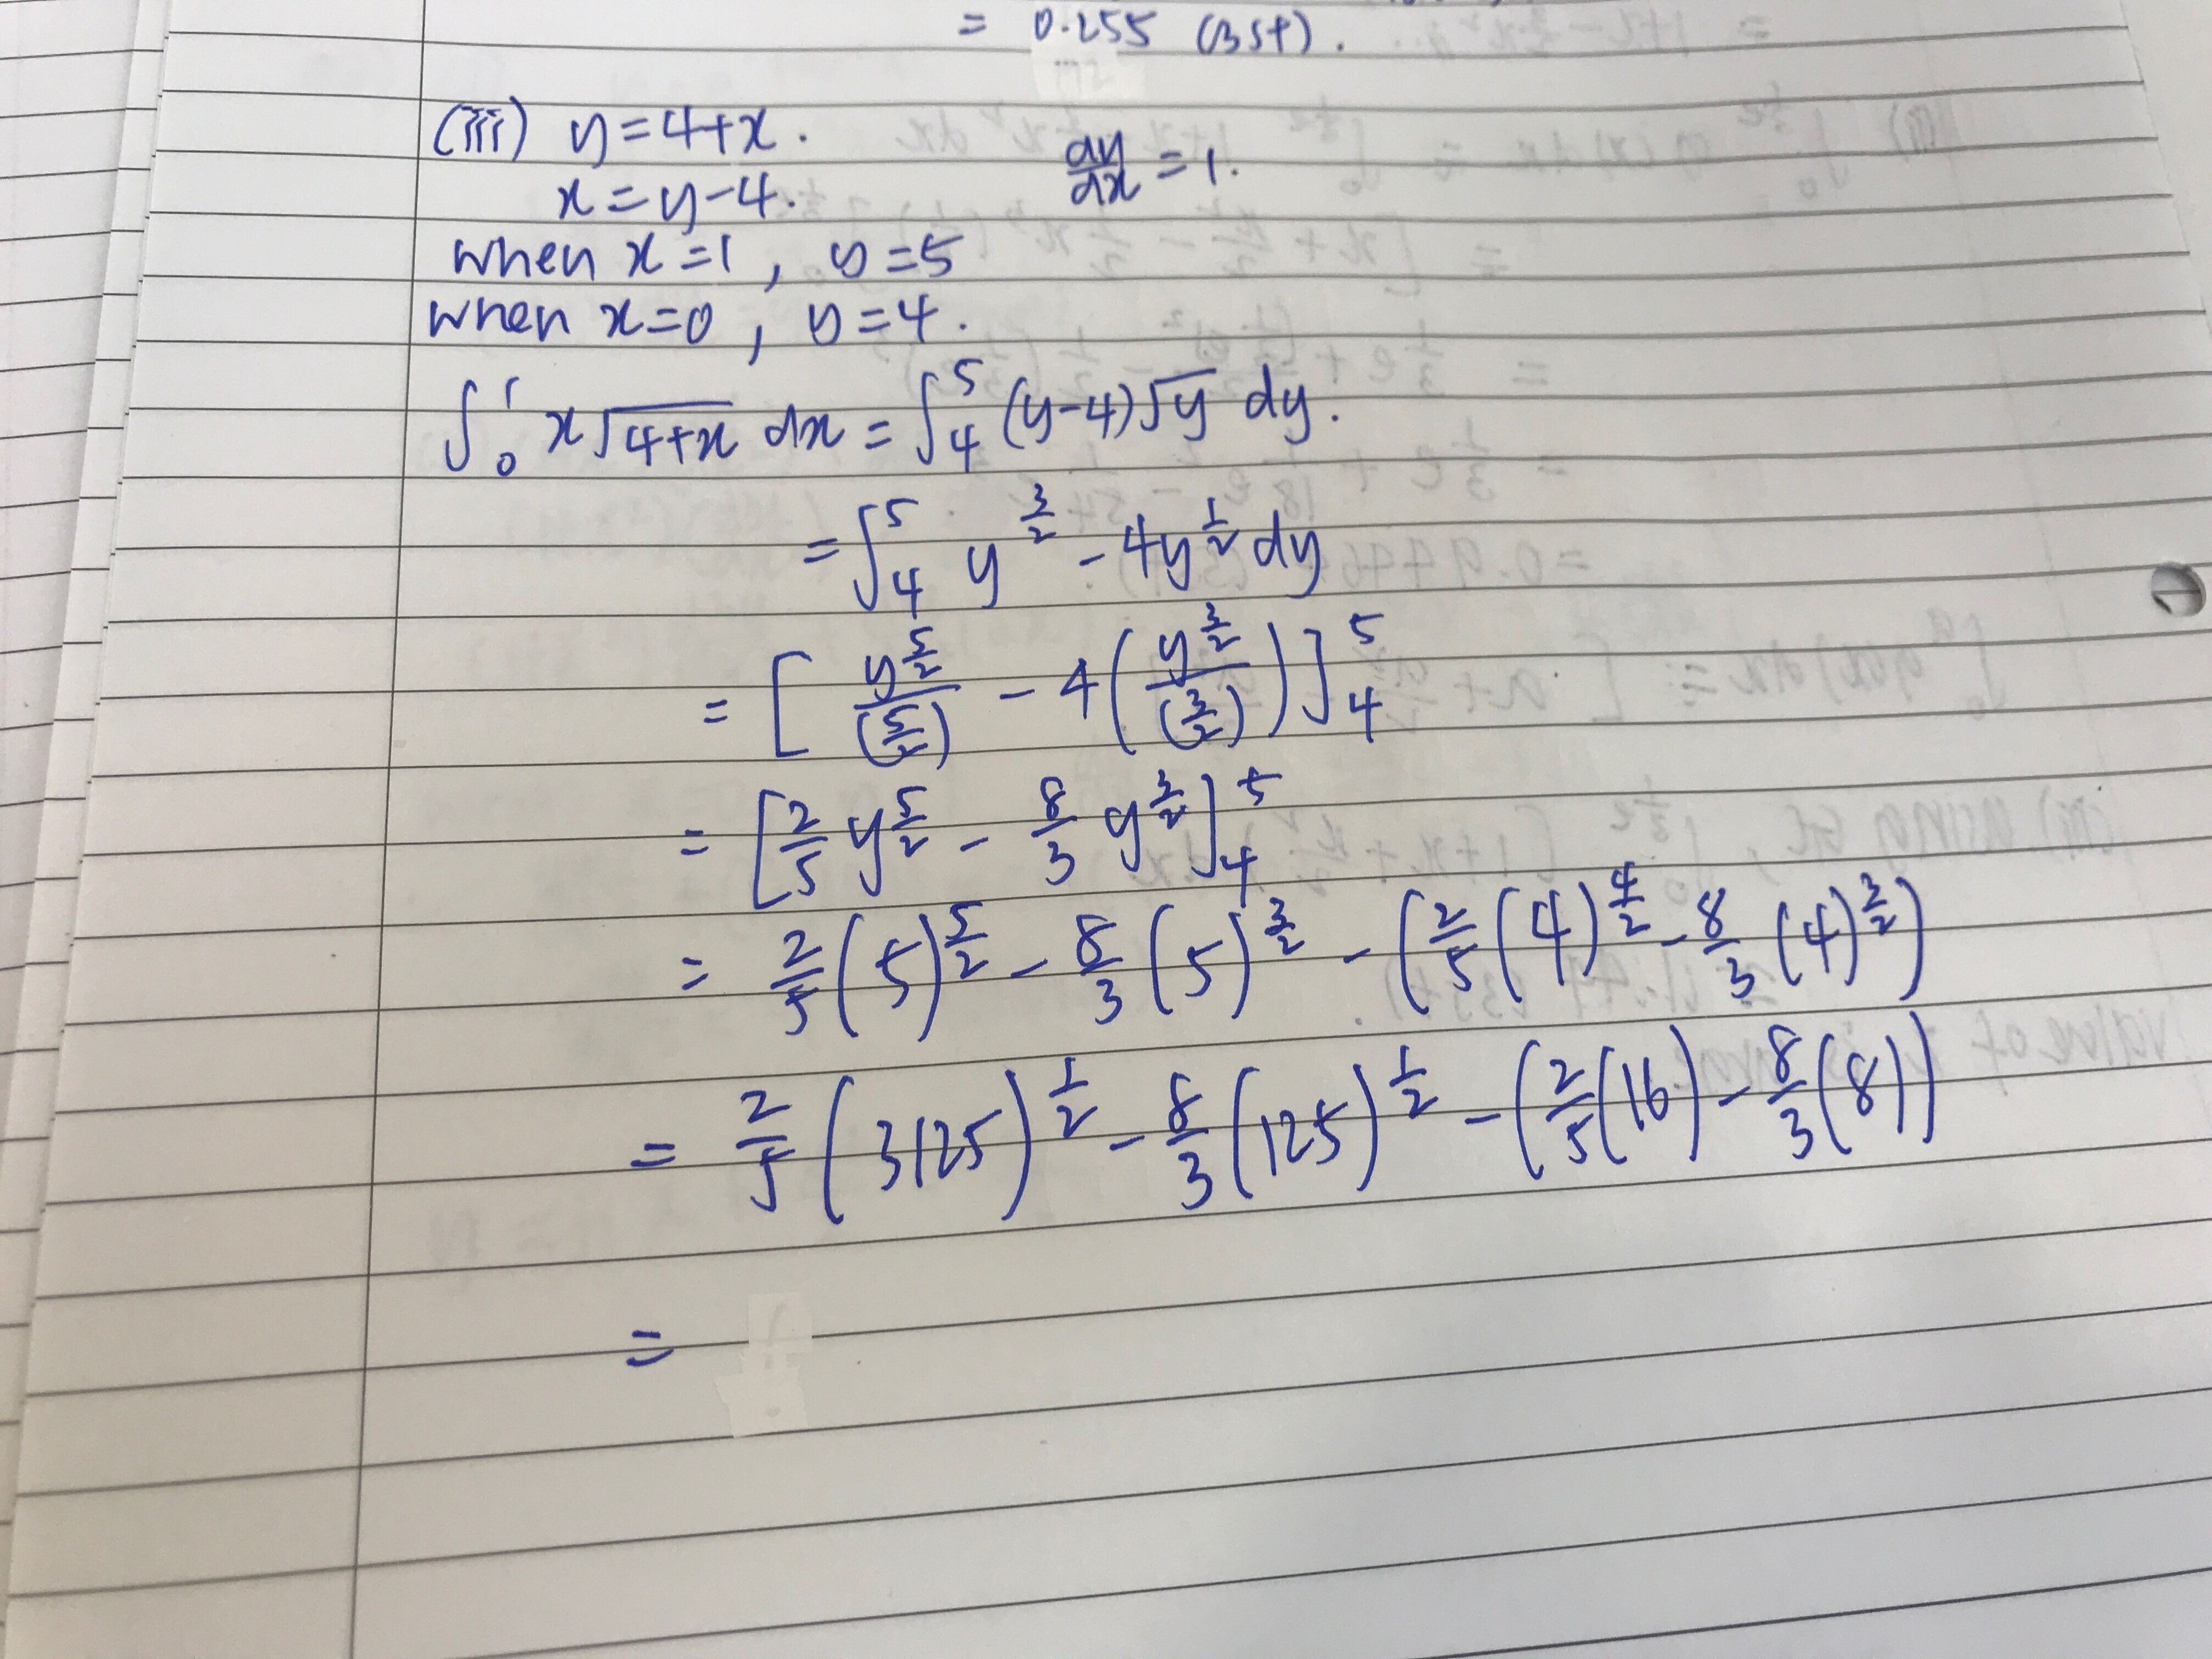 = 0.255 (3sf).
(iii) y = 4+x. dy/dx = 1.
x = y-4.
when x = 1, y = 5
when x = 0, y = 4.
∫₀¹ x√(4+x) dx = ∫₄⁵ (y-4)√y dy.
= ∫₄⁵ y^(3/2) - 4y^(1/2) dy
= [ y^(5/2)/(5/2) - 4( y^(3/2)/(3/2) ) ]₄⁵
= [ 2/5 y^(5/2) - 8/3 y^(3/2) ]₄⁵
= 2/5 (5)^(5/2) - 8/3 (5)^(3/2) - ( 2/5 (4)^(4/2) - 8/3 (4)^(3/2) )
= 2/5 (3125)^(1/2) - 8/3 (125)^(1/2) - ( 2/5 (16) - 8/3 (8) )
=